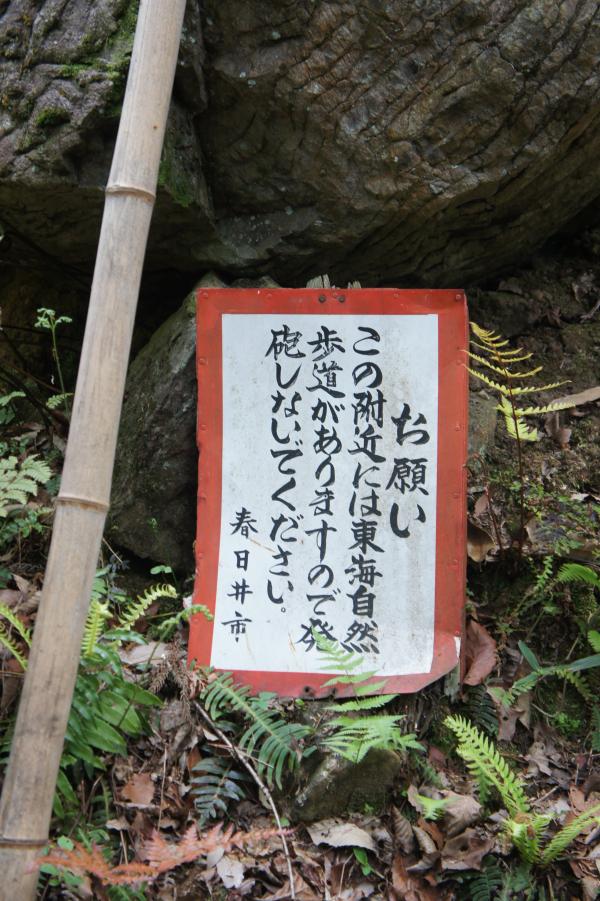 お願い
この附近には東海自然
歩道がありますので発
砲しないでください。
春日井市